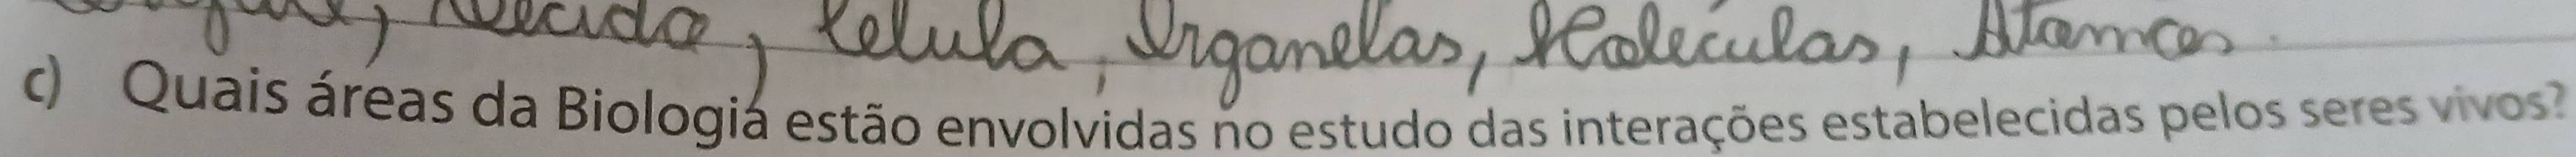 tecido, Celula, Organelas, Moleculas, Atomos
c) Quais áreas da Biologia estão envolvidas no estudo das interações estabelecidas pelos seres vivos?